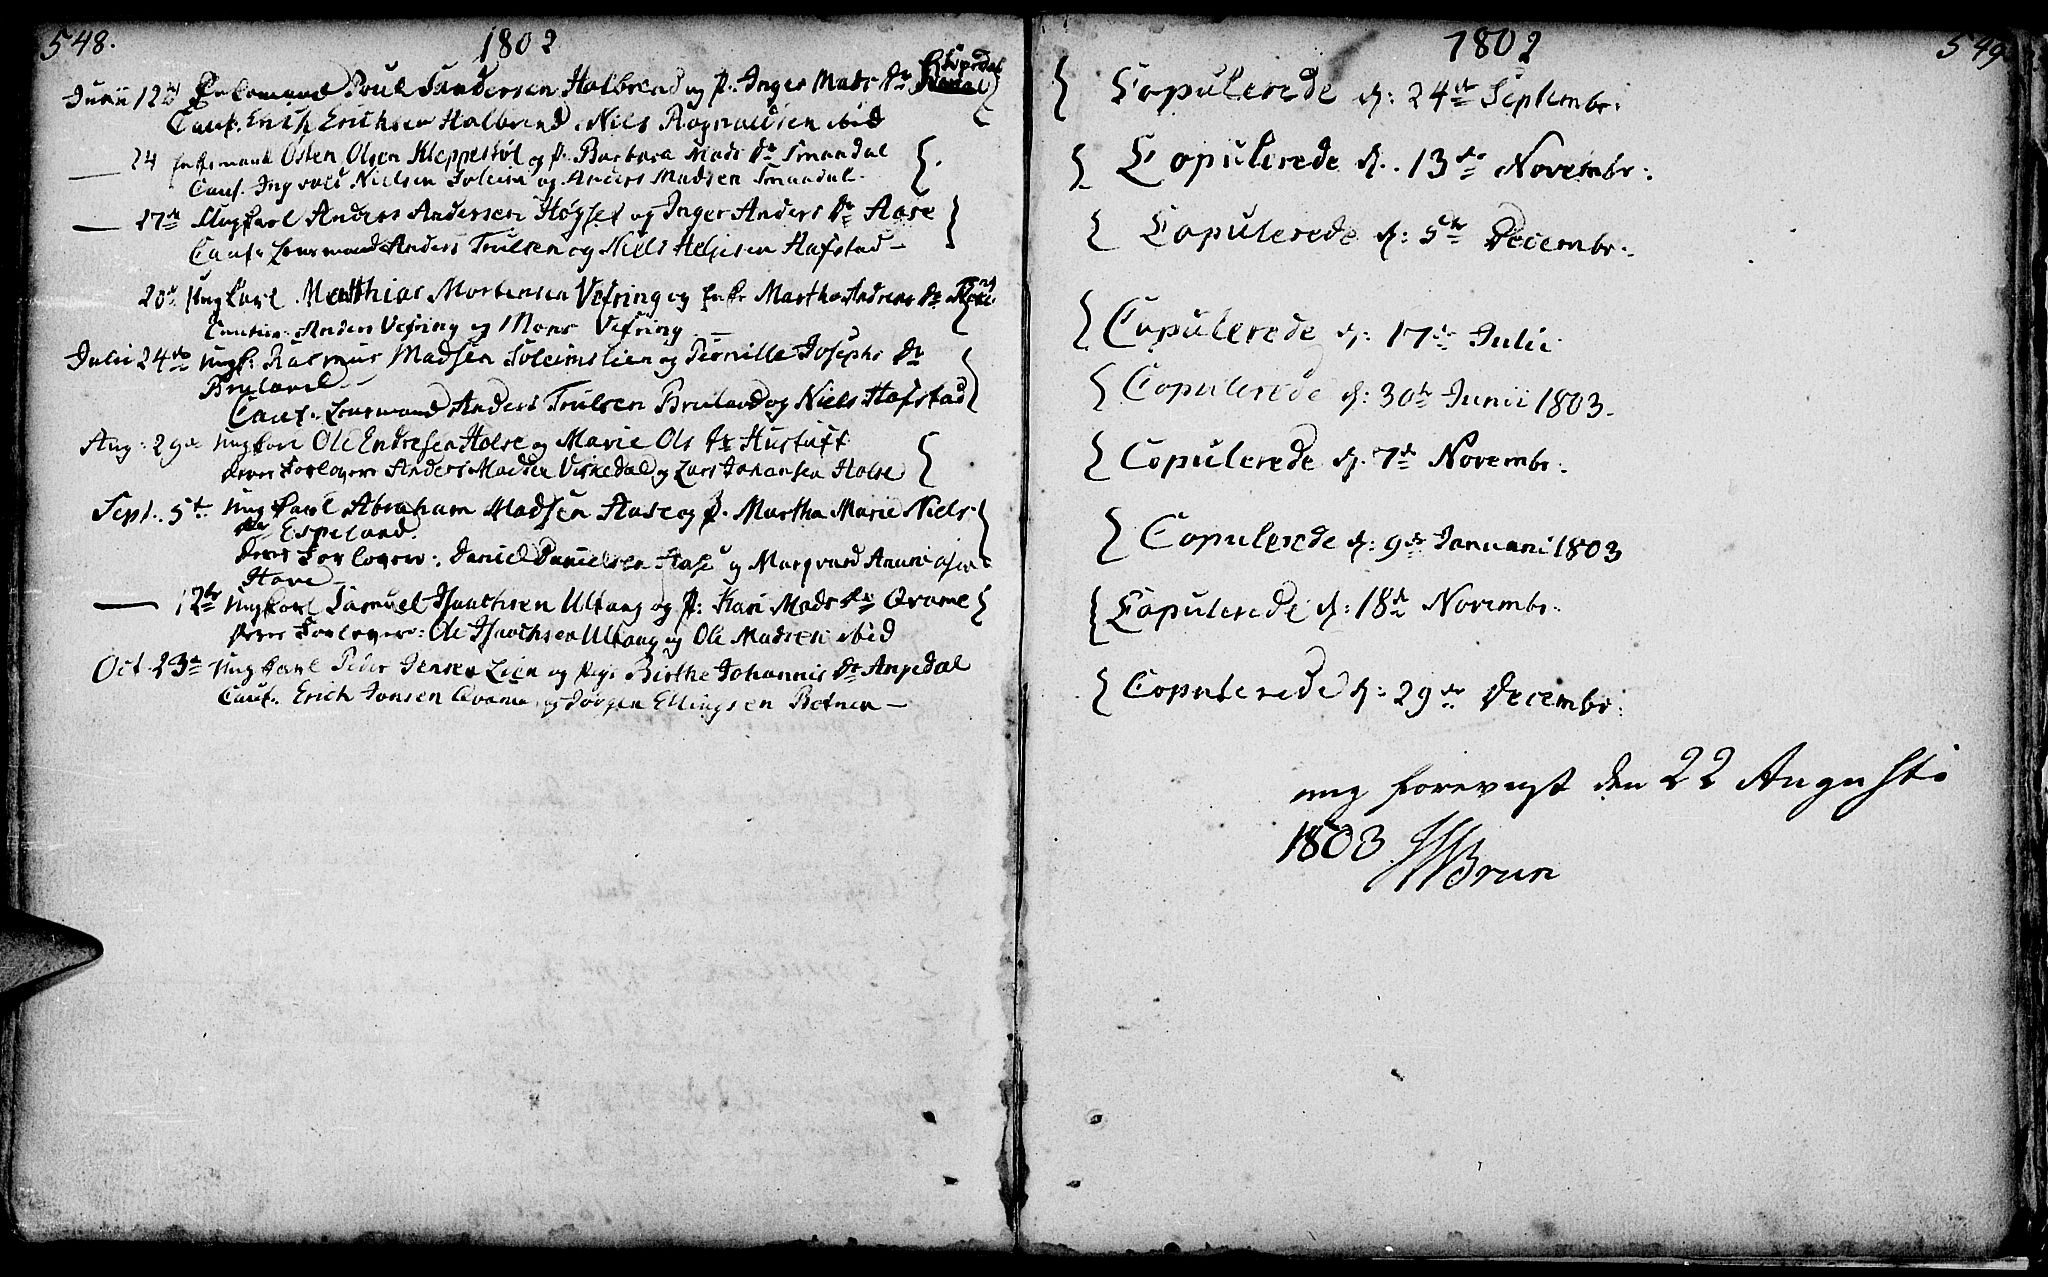 548.
1802
Junii 12te Enkemand Poul Sandersen Halbrend og P. Inger Mads Dr Espedal
Caut. Erich Erichsen Halbrend, Niels Rognaldsen ibid
— 24 Enkemand Osten Olsen Kleppestøl og P. Barbara Mads Dr Smaadal
Caut. Ingvald Nielsen Soleim og Anders Madsen Smaadal.
— 17de Ungkarl Anders Andersen Høgset og Inger Anders Dr Aase
Caut. Lensmand Anders Trulsen og Niels Helgesen Hafstad —
20de Ungkarl Matthias Mortensen Vefring og Enke Martha Anders Dr
Caution: Anders Vefring og Mons Vefring —
Julii 24de Ungk: Rasmus Madsen Soleimslien og Pernille Josephs Dr
Bruland —
Caut. Lensmand Anders Trulsen Bruland og Niels Hafstad
Aug: 29de Ungkarl Ole Endresen Holse og Marie Ols Dr Hustuft
deres Forlovere Anders Madsen Viskedal og Lars Johansen Holse
Sept. 5te Ungkarl Abraham Madsen Aase og P. Martha Marie Niels
dr Espeland.
deres Forlovere: Daniel Danielsen Aase og Marqvard
Hove —
— 12te Ungkarl Samuel Isachsen Ullang og P: Kari Mads dr Qvame
deres Forlovere: Ole Isachsen Ullang og Ole Madsen ibid
Oct. 23de Ungkarl Peder Jensen Lien og Pige Birthe Johannis Dr Angedal
Caut. Erich Jonsen Qvame, og Jørgen Ellingsen Botnen —
1802
549
Copulerede d: 24de Septembr:
Copulerede d. 13de Novembr:
Copulerede d: 5te Decembr:
Copulerede d: 17de Julii
Copulerede d: 30te Junii 1803.
Copulerede d. 7de Novembr:
Copulerede d: 9de Januarii 1803
Copulerede d: 18de Novembr:
Copulerede d: 29de Decembr:
mig forevist den 22 Augusti
1803 Brun